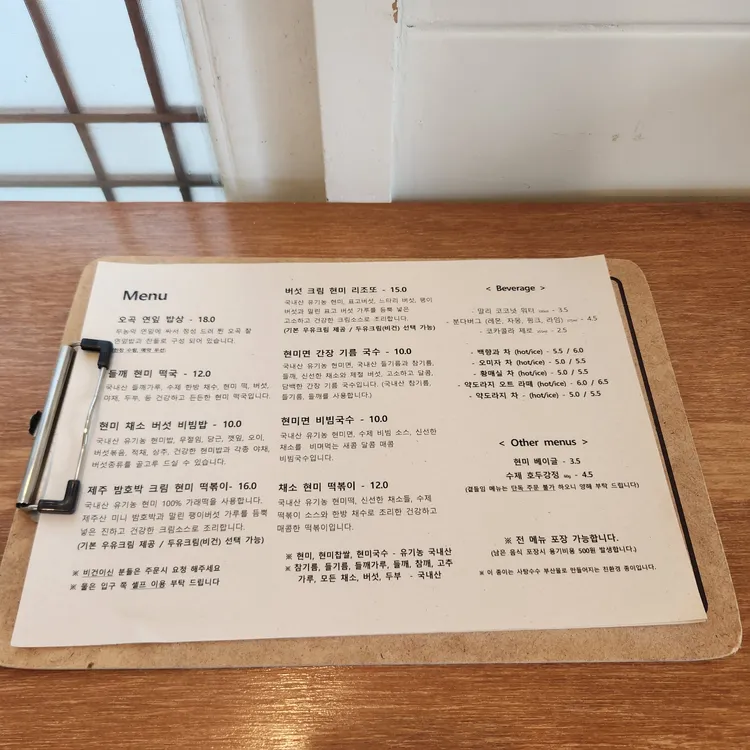 Menu
오곡 연잎 밥상 - 18.0
무농약 연잎에 싸서 정성 드려 찐 오곡 찰
연잎밥과 찬들로 구성 되어 있습니다.
들깨 현미 떡국 - 12.0
국내산 들깨가루, 수제 한방 채수, 현미 떡, 버섯,
야채, 두부, 등 건강하고 든든한 현미 떡국입니다.
현미 채소 버섯 비빔밥 - 10.0
국내산 유기농 현미밥, 무절임, 당근, 깻잎, 오이,
버섯볶음, 적채, 상추, 건강한 현미밥과 각종 야채,
버섯종류를 골고루 드실 수 있습니다.
제주 밤호박 크림 현미 떡볶이- 16.0
국내산 유기농 현미 100% 가래떡을 사용합니다.
제주산 미니 밤호박과 말린 팽이버섯 가루를 듬뿍
넣은 진하고 건강한 크림소스로 조리합니다.
(기본 우유크림 제공 / 두유크림(비건) 선택 가능)
※ 비건이신 분들은 주문시 요청 해주세요
※ 물은 입구 쪽 셀프 이용 부탁 드립니다
버섯 크림 현미 리조또 - 15.0
국내산 유기농 현미, 표고버섯, 느타리 버섯, 팽이
버섯과 말린 표고 버섯 가루를 듬뿍 넣은
고소하고 건강한 크림소스로 조리합니다.
(기본 우유크림 제공 / 두유크림(비건) 선택 가능)
현미면 간장 기름 국수 - 10.0
국내산 유기농 현미면, 국내산 들기름과 참기름,
들깨, 신선한 채소와 제철 버섯, 고소하고 달콤,
담백한 간장 기름 국수입니다. (국내산 참기름,
들기름, 들깨를 사용합니다.)
현미면 비빔국수 - 10.0
국내산 유기농 현미면, 수제 비빔 소스, 신선한
채소를 비벼먹는 새콤 달콤 매콤
비빔국수입니다.
채소 현미 떡볶이 - 12.0
국내산 유기농 현미떡, 신선한 채소들, 수제
떡볶이 소스와 한방 채수로 조리한 건강하고
매콤한 떡볶이입니다.
※ 현미, 현미찹쌀, 현미국수 - 유기농 국내산
※ 참기름, 들기름, 들깨가루, 들깨, 참깨, 고추
가루, 모든 채소, 버섯, 두부 - 국내산
< Beverage >
- 말리 코코넛 워터 - 3.5
- 분다버그 (레몬, 자몽, 핑크, 라임) - 4.5
- 코카콜라 제로 - 2.5
- 백향과 차 (hot/ice) - 5.5 / 6.0
- 오미자 차 (hot/ice) - 5.0 / 5.5
- 황매실 차 (hot/ice) - 5.0 / 5.5
- 약도라지 오트 라떼 (hot/ice) - 6.0 / 6.5
- 약도라지 차 - (hot/ice) - 5.0 / 5.5
< Other menus >
현미 베이글 - 3.5
수제 호두강정 - 4.5
(곁들임 메뉴는 단독 주문 불가 하오니 양해 부탁 드립니다)
※ 전 메뉴 포장 가능합니다.
(남은 음식 포장시 용기비용 500원 발생합니다.)
※ 이 종이는 사탕수수 부산물로 만들어지는 친환경 종이입니다.